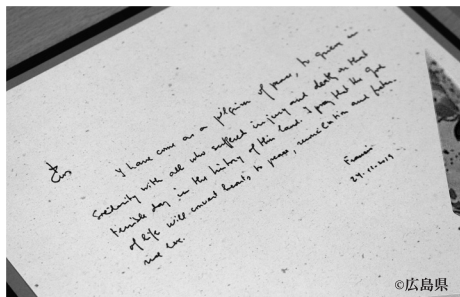 I have come as a pilgrim of peace, to grieve in
solidarity with all who suffered injury and death on that
terrible day in the history of this land. I pray that the God
of life will convert hearts to peace, reconciliation and fraternal
love.
24.11.2019
©広島県